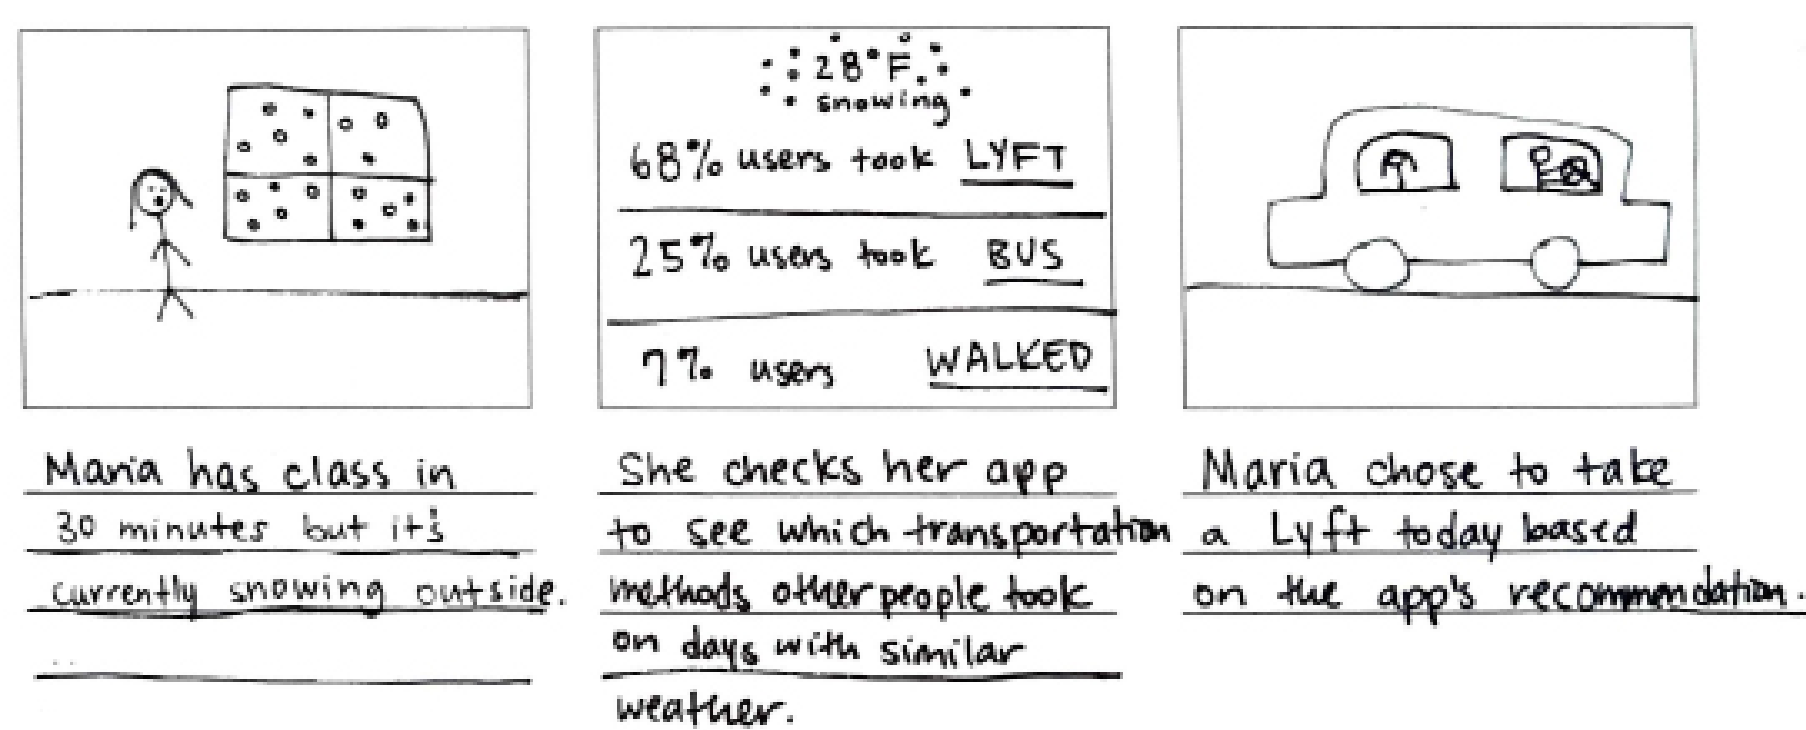 28°F
snowing
68% users took LYFT
25% users took BUS
7% users WALKED
Maria has class in
30 minutes but it's
currently snowing outside.
She checks her app
to see which transportation
methods other people took
on days with similar
weather.
Maria chose to take
a Lyft today based
on the app's recommendation.